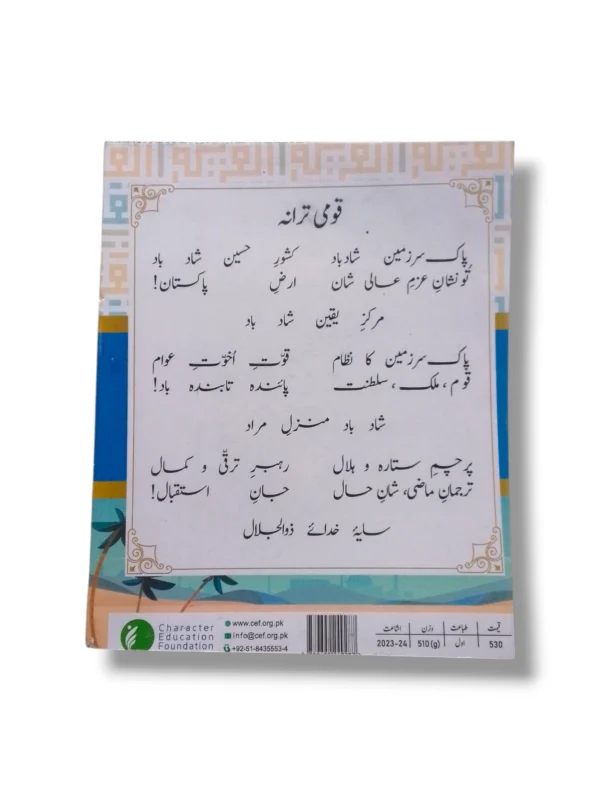 قومی ترانہ
پاک سرزمین شاد باد کشورِ حسین شاد باد
تُو نشانِ عزمِ عالی شان ارضِ پاکستان!
مرکزِ یقین شاد باد
پاک سرزمین کا نظام قوّتِ اُخوّتِ عوام
قوم، ملک، سلطنت پائندہ تابندہ باد!
شاد باد منزلِ مراد
پرچمِ ستارہ و ہلال رہبرِ ترقّی و کمال
ترجمانِ ماضی، شانِ حال جانِ استقبال!
سایۂ خدائے ذوالجلال
قیمت طباعت وزن اشاعت
530 اول 510(g) 2023-24
Character
Education
Foundation
www.cef.org.pk
info@cef.org.pk
+92-51-8435553-4